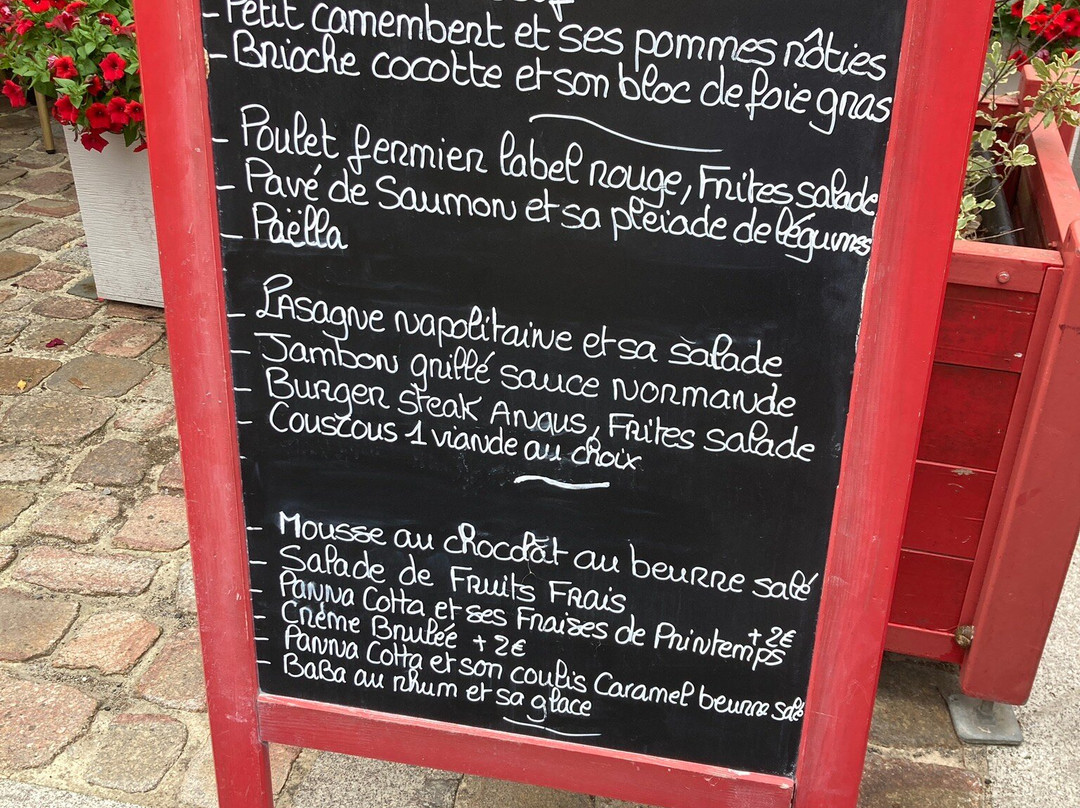 - Petit camembert et ses pommes rôties
- Brioche cocotte et son bloc de foie gras
- Poulet fermier label rouge, Frites salade
- Pavé de Saumon et sa pleiade de légumes
- Paëlla
- Lasagne napolitaine et sa salade
- Jambon grillé sauce normande
- Burger Steak Angus, Frites Salade
- Couscous 1 viande au choix
- Mousse au chocolat au beurre salé
- Salade de Fruits Frais
- Panna Cotta et ses Fraises de Printemps +2€
- Crème Brulée +2€
- Panna Cotta et son coulis Caramel beurre salé
- BaBa au rhum et sa glace